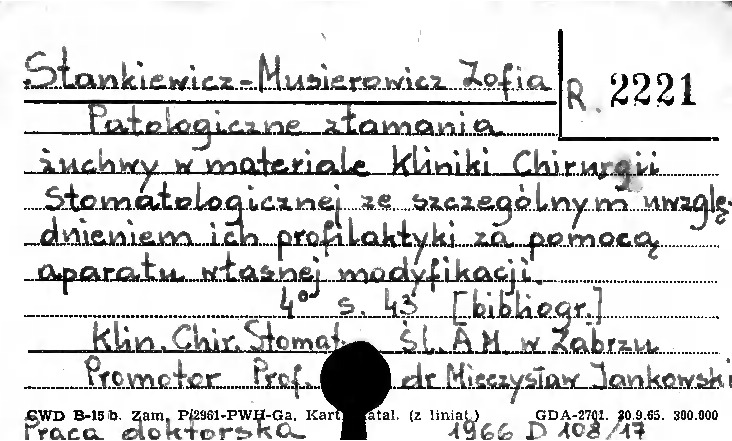 Stankiewicz-Musierowicz Zofia
R. 2221
Patologiczne złamania
żuchwy w materiale Kliniki Chirurgii
Stomatologicznej ze szczególnym uwzglę-
dnieniem ich profilaktyki za pomocą
aparatu własnej modyfikacji.
4° s. 43 [bibliogr.]
Klin. Chir. Stomat. Śl. A.M. w Zabrzu
Promotor Prof. dr Mieczysław Jankowski
CWD B-15 b. Zam. P/2961-PWH-Ga. Kart. katal. (z liniat.) GDA-2701. 30.9.65. 300.000
Praca doktorska 1966 D 108/17